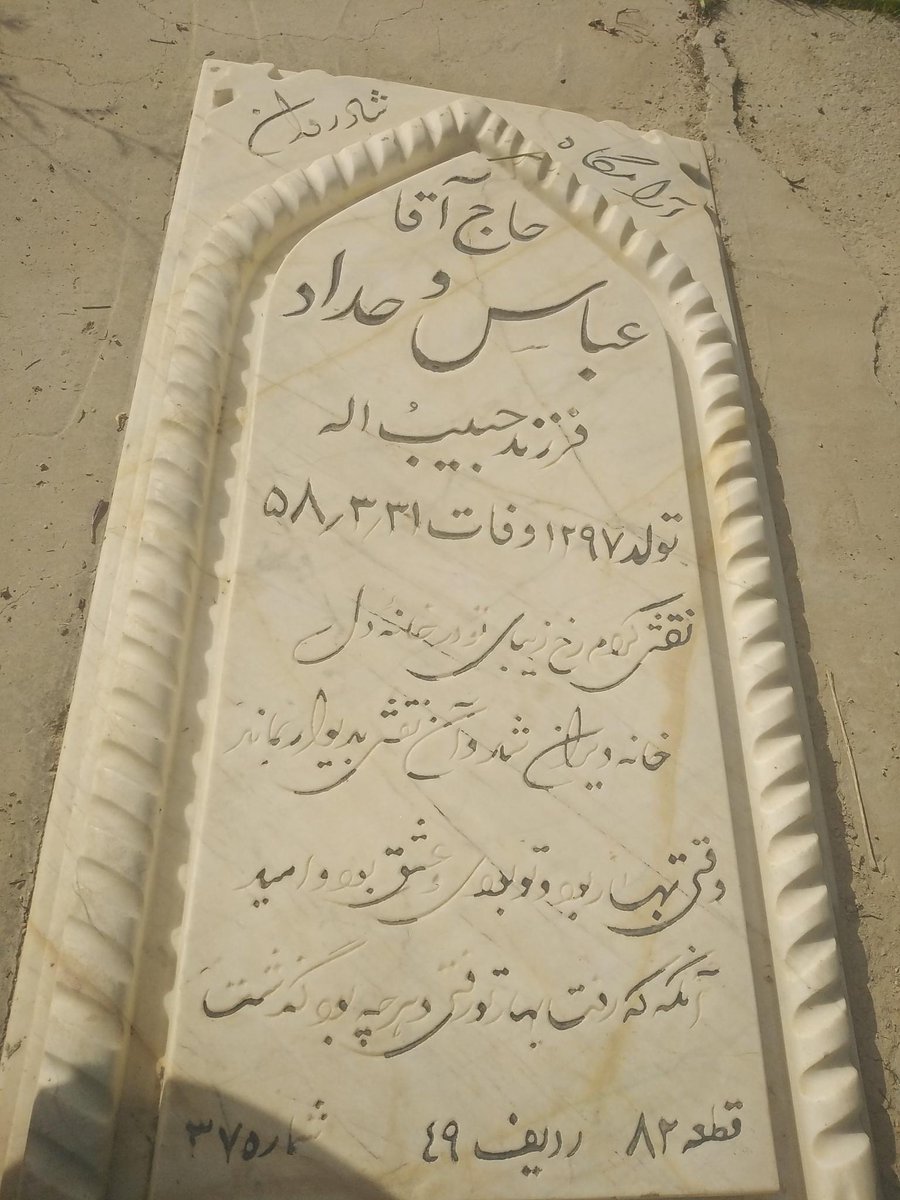 آرامگاه شادروان
حاج آقا
عباس وحداد
فرزند حبیب اله
تولد ۱۲۹۷ وفات ۵۸/۳/۳۱
نقش کردم رخ زیبای تو در خانهٔ دل
خانه ویران شد و آن نقش بدیوار بماند
وقتی بهار بود و تو بودی و عشق بود و امید
آنگه که رفت بهار تو رفتی و هر چه بود گذشت
قطعه ۸۲ ردیف ۴۹ شماره ۳۷